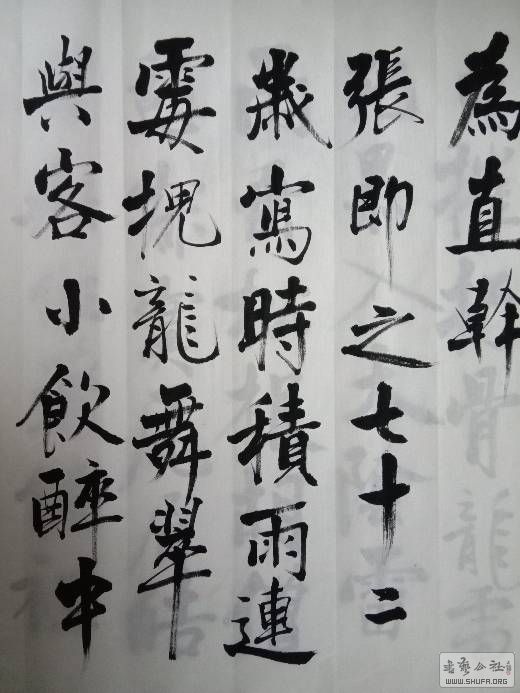 為直幹
張即之七十二
歲寫時積雨連
霉塊龍舞翠
與客小飲醉中
书艺公社
WWW.SHUFA.ORG